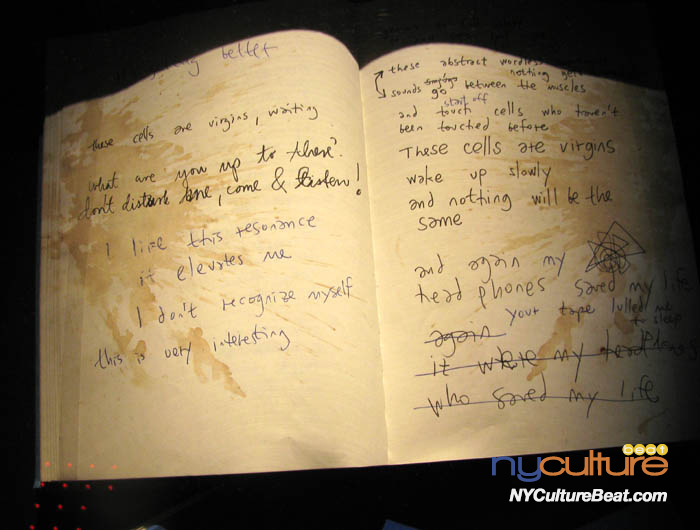 better
these cells are virgins, waiting
what are you up to there?
don't disturb me, come & listen!
I like this resonance
it elevates me
I don't recognize myself
this is very interesting
these abstract wordless
nothing gets
sounds go between the muscles
start off
and touch cells who haven't
been touched before
These cells are virgins
wake up slowly
and nothing will be the
same
and again my
head phones saved my life
your tape lulled me
to sleep
again
it where my headphones
who saved my life
nyculture
beat
NYCultureBeat.com